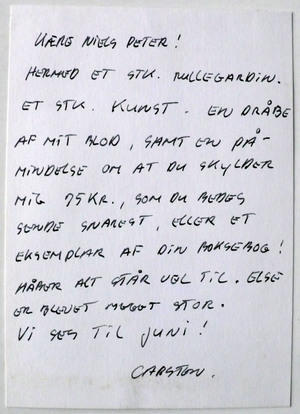 KÆRE NIELS PETER!
HERMED ET STK. RULLEGARDIN.
ET STK. KUNST. EN DRÅBE
AF MIT BLOD, SAMT EN PÅ-
MINDELSE OM AT DU SKYLDER
MIG 75 KR., SOM DU BEDES
SENDE SNAREST, ELLER ET
EKSEMPLAR AF DIN BOKSEBOG!
HÅBER ALT STÅR VEL TIL. ELSE
ER BLEVET MEGET STOR.
VI SES TIL JUNI!
CARSTEN.